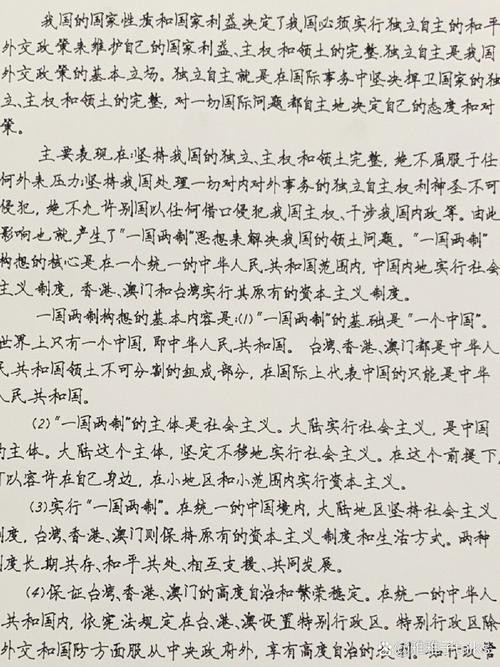 我国的国家性质和国家利益决定了我国必须实行独立自主的和平
外交政策来维护自己的国家利益、主权和领土的完整.独立自主是我国
外交政策的基本立场。独立自主就是在国际事务中坚决捍卫国家的独
立、主权和领土的完整，对一切国际问题都自主地决定自己的态度和对
策。
主要表现在:坚持我国的独立、主权和领土完整，绝不屈服于任
何外来压力;坚持我国处理一切对内对外事务的独立自主权利神圣不可
侵犯，绝不允许别国以任何借口侵犯我国主权、干涉我国内政等。由此
影响也就产生了"一国两制"思想来解决我国的领土问题。"一国两制"
构想的核心是在一个统一的中华人民共和国范围内，中国内地实行社会
主义制度，香港、澳门和台湾实行其原有的资本主义制度。
一国两制构想的基本内容是:(1)"一国两制"的基础是"一个中国"。
世界上只有一个中国，即中华人民共和国。台湾、香港、澳门都是中华人
民共和国领土不可分割的组成部分，在国际上代表中国的只能是中华
人民共和国。
(2)"一国两制"的主体是社会主义。大陆实行社会主义，是中国
的主体。大陆这个主体，坚定不移地实行社会主义。在这个前提下，
可以容许在自己身边，在小地区和小范围内实行资本主义。
(3)实行"一国两制"。在统一的中国境内，大陆地区坚持社会主义
制度，台湾、香港、澳门则保持原有的资本主义制度和生活方式。两种
制度长期共存、和平共处、相互支援、共同发展。
(4)保证台湾、香港、澳门的高度自治和繁荣稳定。在统一的中华人
共和国内，依宪法规定在台、港、澳设置特别行政区。特别行政区除
外交和国防方面服从中央政府外，享有高度自治的